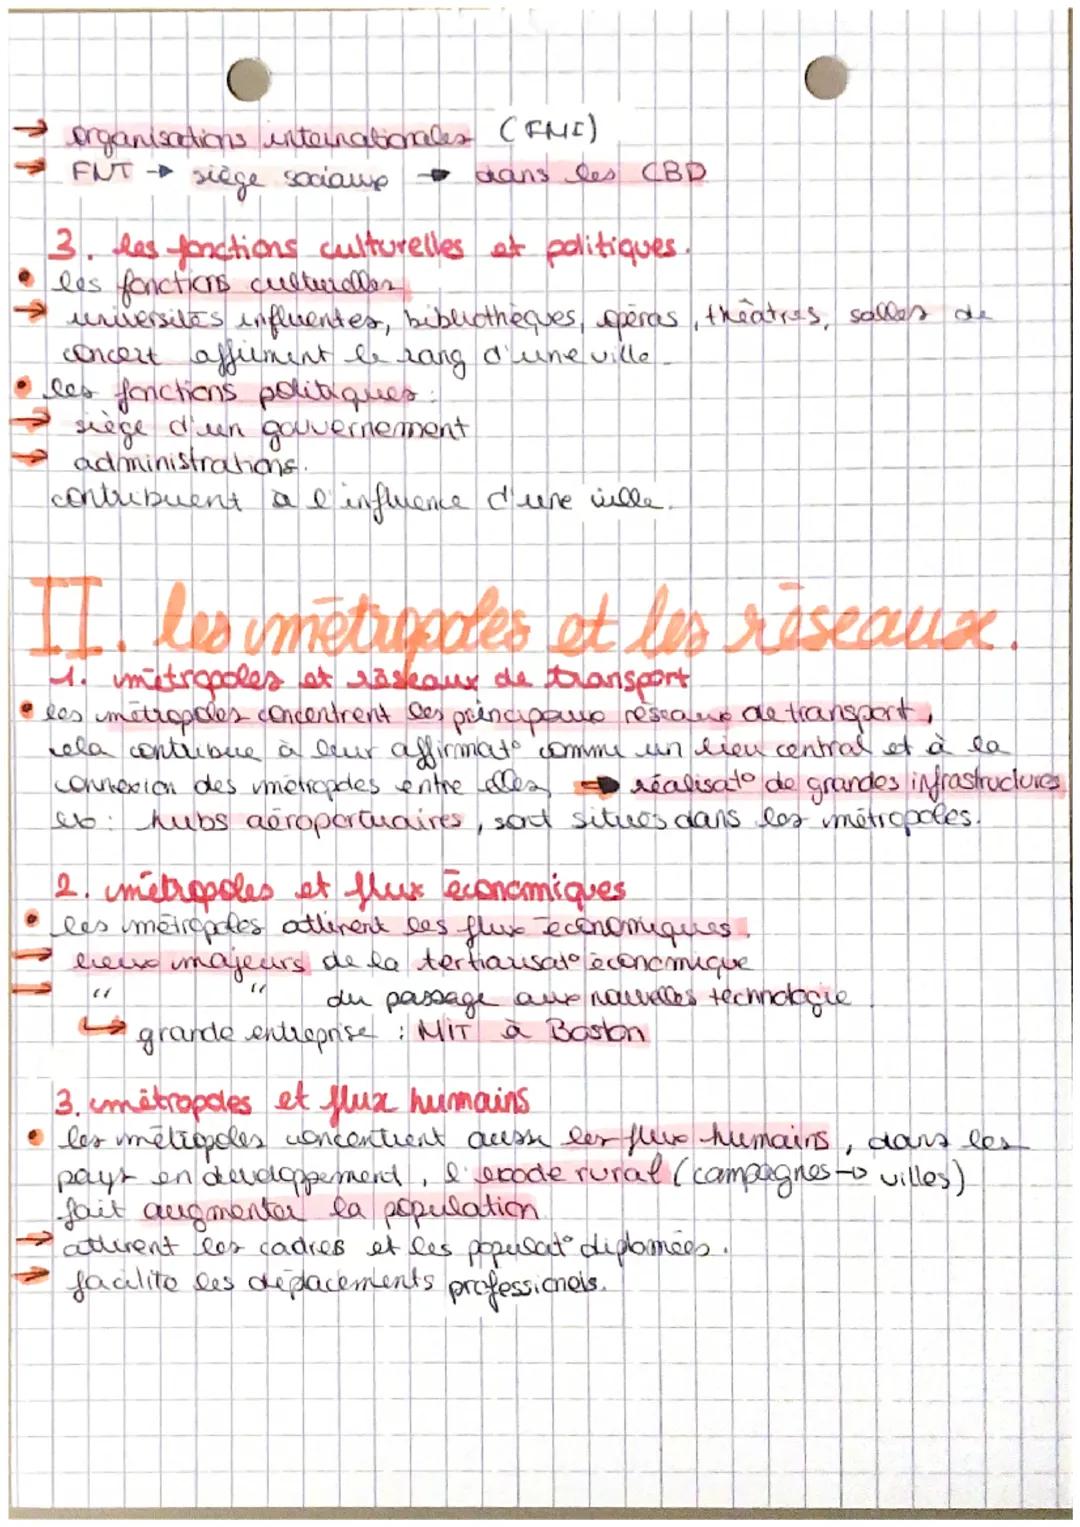 → organisations internationales (FMI)
→ FNT → siège sociaux → dans les CBD
3. les fonctions culturelles et politiques.
• les fonctions culturelles
→ universités influentes, bibliothèques, opéras, théâtres, salles de
concert affirment le rang d'une ville.
• les fonctions politiques :
→ siège d'un gouvernement
→ administrations.
contribuent à l'influence d'une ville.
II. les métropoles et les réseaux.
1. métropoles et réseaux de transport
• les métropoles concentrent les principaux réseaux de transport,
cela contribue à leur affirmat° comme un lieu central et à la
connexion des métropoles entre elles → réalisat° de grandes infrastructures
ex : hubs aéroportuaires, sont situés dans les métropoles.
2. métropoles et flux économiques
• les métropoles attirent les flux économiques.
→ lieux majeurs de la tertiarisat° économique
→ " " du passage aux nouvelles technologie
↳ grande entreprise : MIT à Boston
3. métropoles et flux humains
• les métropoles concentrent aussi les flux humains, dans les
pays en developpement, l'exode rural (campagnes → villes)
fait augmenter la population
→ attirent les cadres et les populat° diplomées.
→ facilite les déplacements professionels.